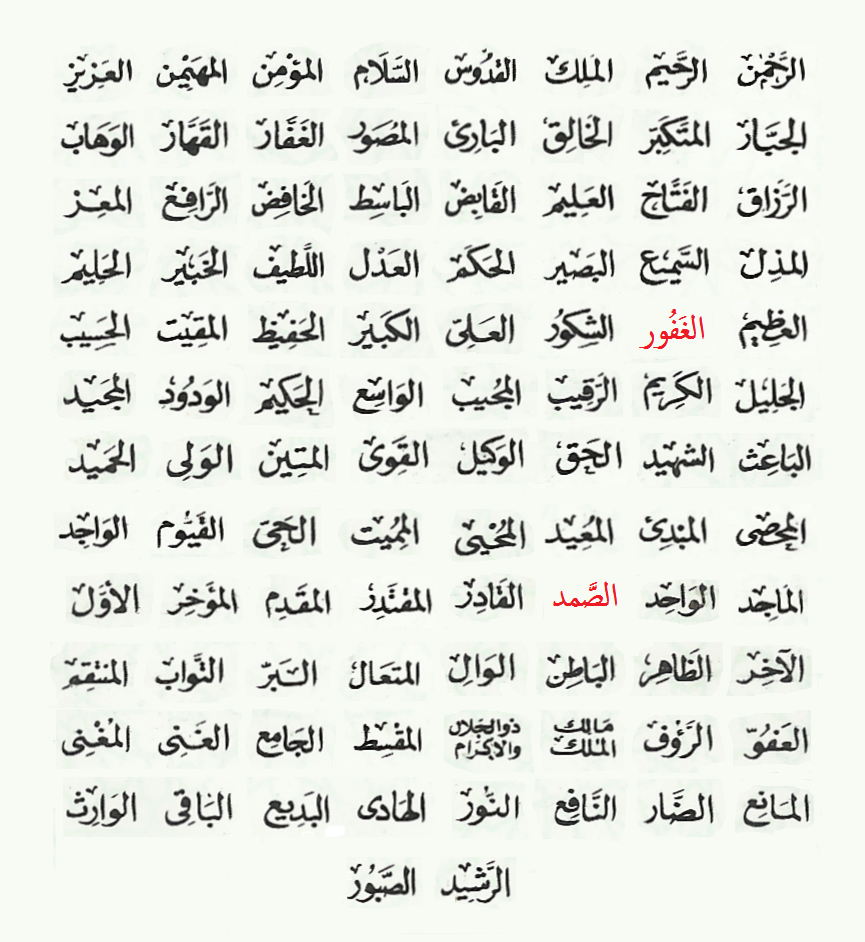 الرَّحْمٰنُ الرَّحِيْم المَلِك القُدُّوس السَّلَام المُؤْمِن المُهَيْمِن العَزِيْز
الجَبَّار المتَكَبِّر الخَالِقُ البَارِئ المُصَوِّر الغَفَّار القَهَّار الوَهَاب
الرَّزَاق الفَتَّاح العَلِيم القَابِض البَاسِط الخَافِض الرَّافِع المعِز
المذِل السَّمِيع البَصِير الحَكَم العَدْل اللَّطِيف الخَبِير الحَلِيم
العظِيم الغَفُور الشكُورُ العَلِىّ الكَبِير الحَفِيظ المقِيْت الحَسِيب
الجَلِيل الكَرِيم الرَّقِيب المجُيب الوَاسِع الحَكِيم الوَدُود المجَيد
البَاعِث الشهِيد الحَق الوَكِيل القَوِى المتِين الوَلِى الحَمِيد
المحْصِى المبْدِئ المُعِيد المُحْيِى المُمِيت الحَىّ القَيُّوم الوَاجِد
الماَجِد الوَاحِد الصَّمد القَادِرُ المقْتَدِرُ المقَدِم المؤَخِر الأوَّل
الآخِر الظَاهِر البَاطِن الوَالِ المتعَال البَرّ التَّوَاب المنتقِم
العَفُوّ الرَّؤف مَالِك المُلك ذوالجلَال والاكرَام المقْسِط الجَامِع الغَنِى المُغْنِى
المَانِع الضَّار النَّافِع النُّورُ الهَادى البَدِيع البَاقِى الوَارِث
الرَّشِيد الصَّبُورُ